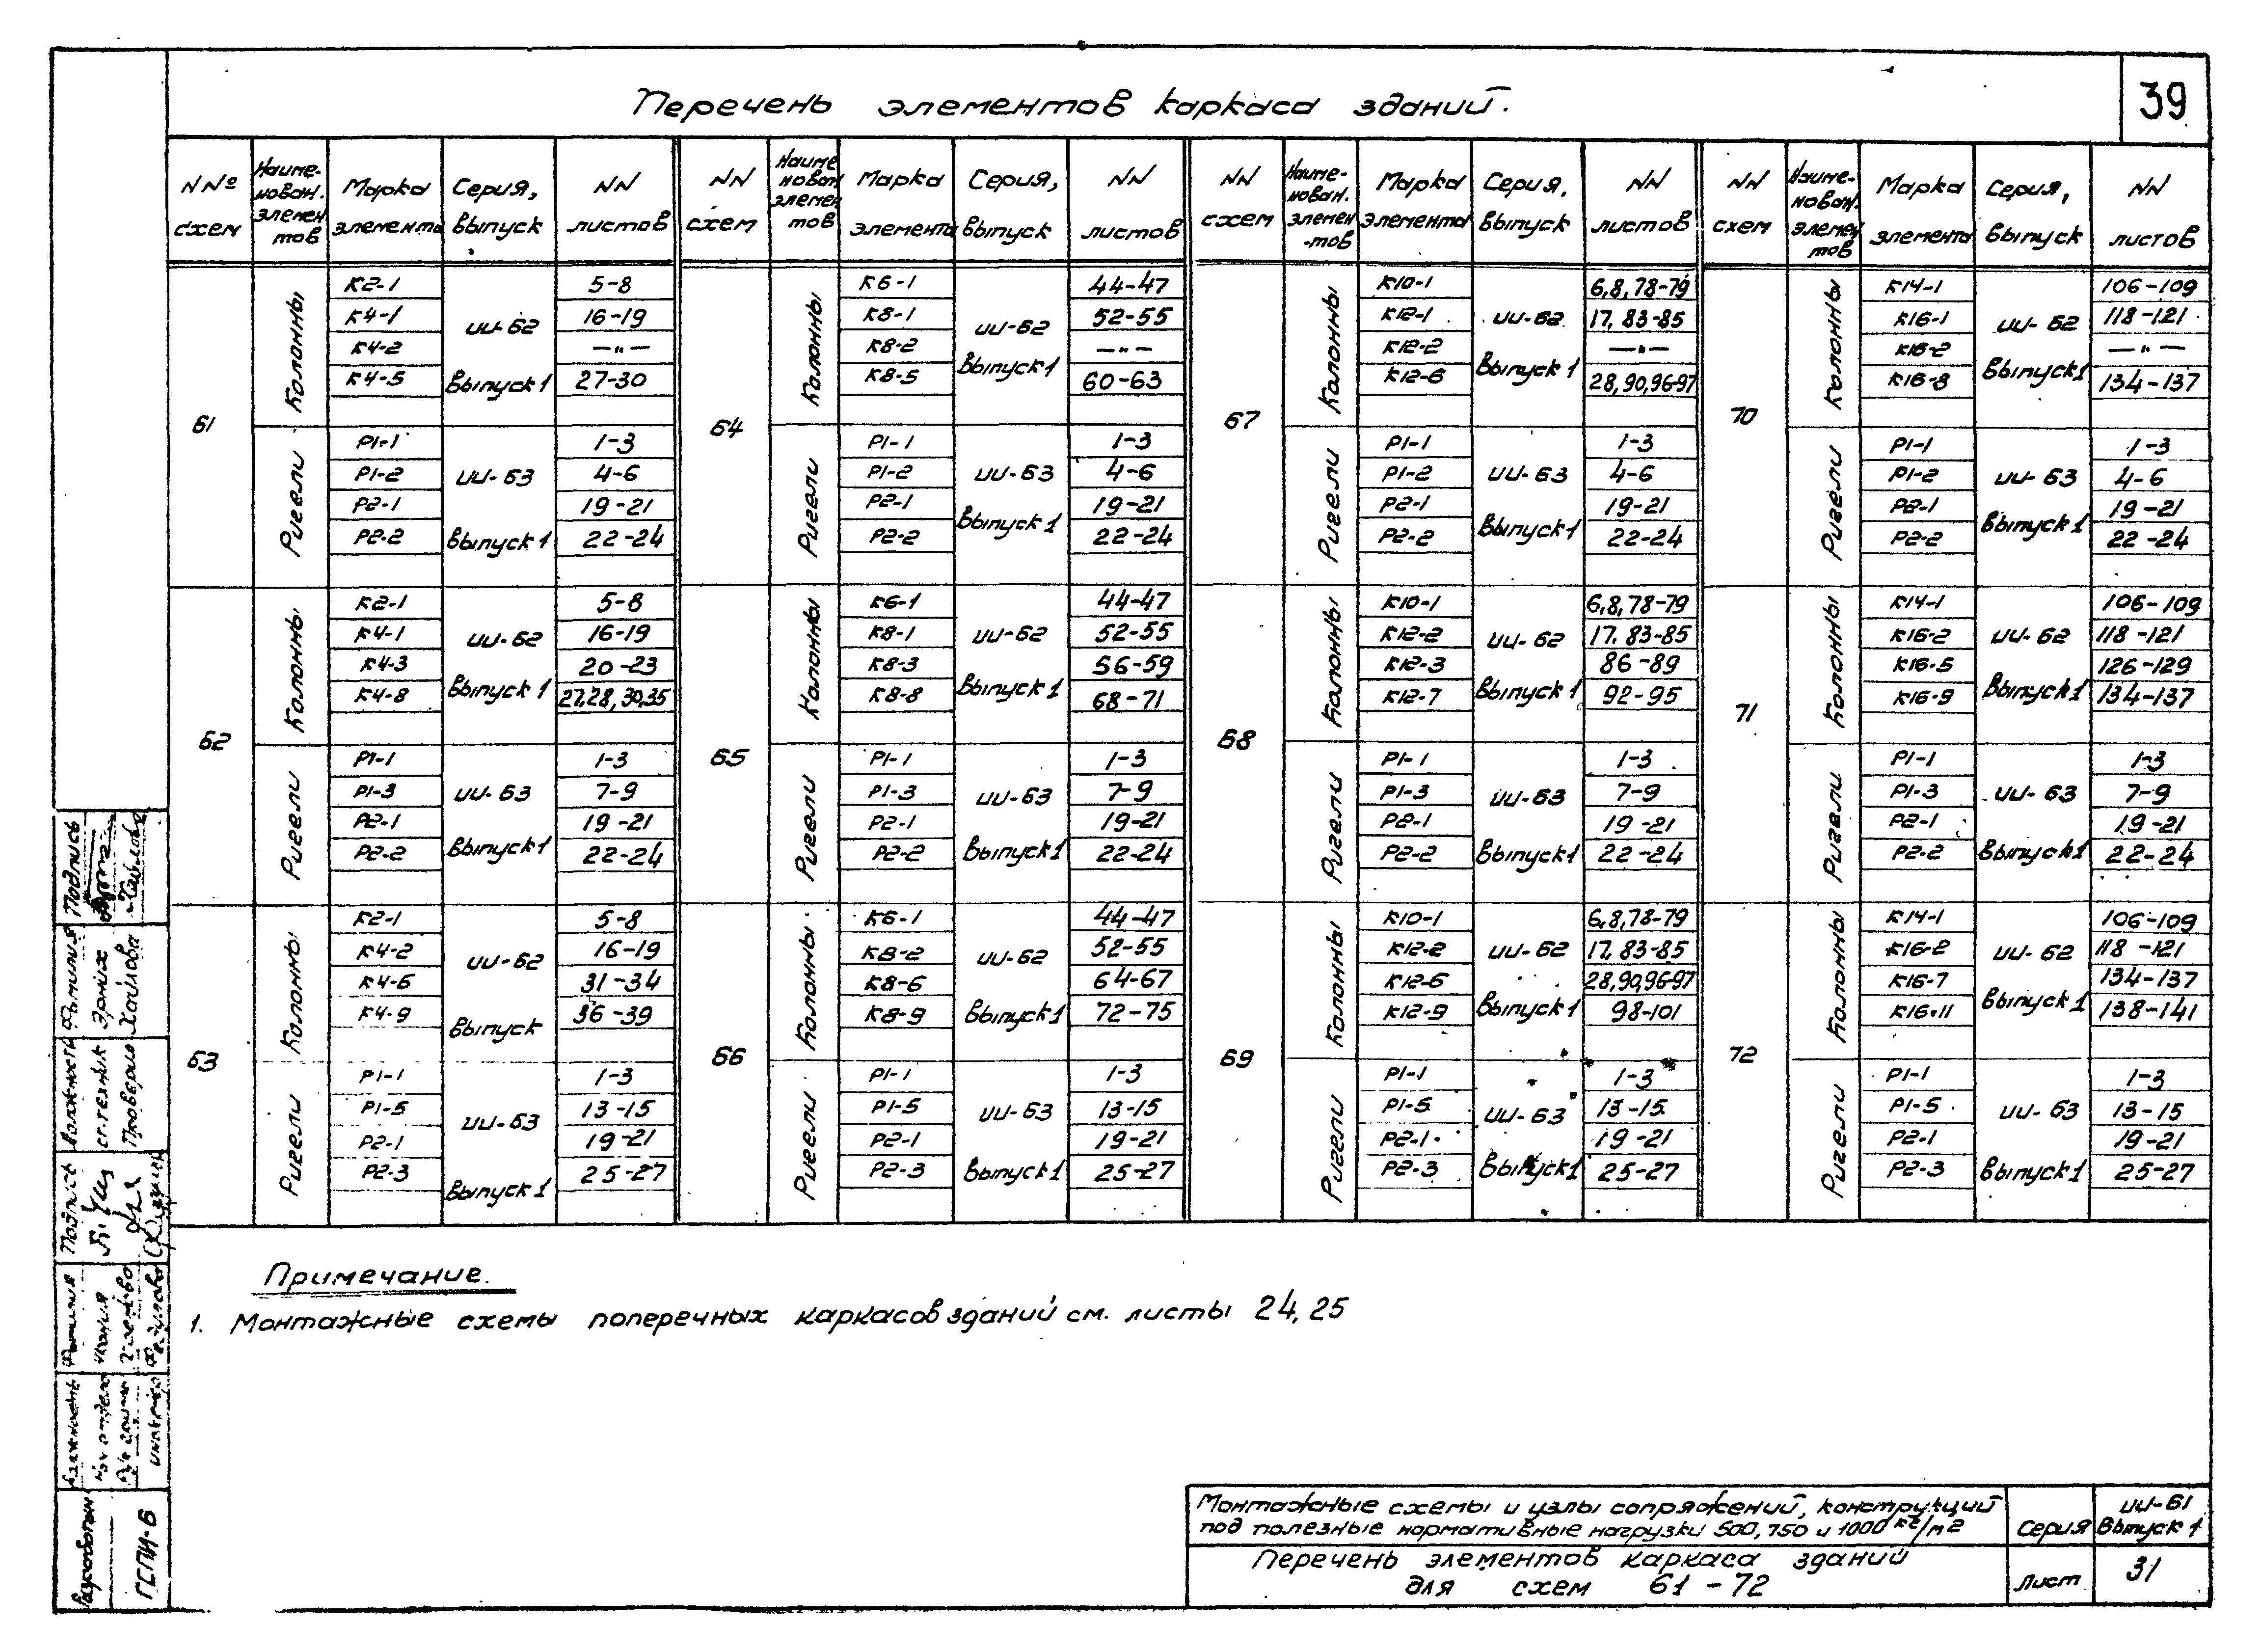 39
Перечень элементов каркаса зданий.
NNº схем | Наиме-нован. элемен тов | Марка элемента | Серия, выпуск | NN листов
61 | Колонны | К2-1 | ИИ-62 Выпуск 1 | 5-8
К4-1 | 16-19
К4-2 | —"—
К4-5 | 27-30
Ригели | Р1-1 | ИИ-63 Выпуск 1 | 1-3
Р1-2 | 4-6
Р2-1 | 19-21
Р2-2 | 22-24
62 | Колонны | К2-1 | ИИ-62 Выпуск 1 | 5-8
К4-1 | 16-19
К4-3 | 20-23
К4-8 | 27,28,30,35
Ригели | Р1-1 | ИИ-63 Выпуск 1 | 1-3
Р1-3 | 7-9
Р2-1 | 19-21
Р2-2 | 22-24
63 | Колонны | К2-1 | ИИ-62 Выпуск | 5-8
К4-2 | 16-19
К4-6 | 31-34
К4-9 | 36-39
Ригели | Р1-1 | ИИ-63 Выпуск 1 | 1-3
Р1-5 | 13-15
Р2-1 | 19-21
Р2-3 | 25-27
NN схем | Наиме нован элемен тов | Марка элемента | Серия, выпуск | NN листов
64 | Колонны | К6-1 | ИИ-62 Выпуск 1 | 44-47
К8-1 | 52-55
К8-2 | —"—
К8-5 | 60-63
Ригели | Р1-1 | ИИ-63 Выпуск 1 | 1-3
Р1-2 | 4-6
Р2-1 | 19-21
Р2-2 | 22-24
65 | Колонны | К6-1 | ИИ-62 Выпуск 1 | 44-47
К8-1 | 52-55
К8-3 | 56-59
К8-8 | 68-71
Ригели | Р1-1 | ИИ-63 Выпуск 1 | 1-3
Р1-3 | 7-9
Р2-1 | 19-21
Р2-2 | 22-24
66 | Колонны | К6-1 | ИИ-62 Выпуск 1 | 44-47
К8-2 | 52-55
К8-6 | 64-67
К8-9 | 72-75
Ригели | Р1-1 | ИИ-63 Выпуск 1 | 1-3
Р1-5 | 13-15
Р2-1 | 19-21
Р2-3 | 25-27
NN схем | Наиме-нован. элемен-тов | Марка элемента | Серия, выпуск | NN листов
67 | Колонны | К10-1 | ИИ-62 Выпуск 1 | 6,8,78-79
К12-1 | 17, 83-85
К12-2 | —"—
К12-6 | 28,90,96-97
Ригели | Р1-1 | ИИ-63 Выпуск 1 | 1-3
Р1-2 | 4-6
Р2-1 | 19-21
Р2-2 | 22-24
68 | Колонны | К10-1 | ИИ-62 Выпуск 1 | 6,8,78-79
К12-2 | 17, 83-85
К12-3 | 86-89
К12-7 | 92-95
Ригели | Р1-1 | ИИ-63 Выпуск 1 | 1-3
Р1-3 | 7-9
Р2-1 | 19-21
Р2-2 | 22-24
69 | Колонны | К10-1 | ИИ-62 Выпуск 1 | 6,8,78-79
К12-2 | 17, 83-85
К12-6 | 28,90,96-97
К12-9 | 98-101
Ригели | Р1-1 | ИИ-63 Выпуск 1 | 1-3
Р1-5 | 13-15
Р2-1 | 19-21
Р2-3 | 25-27
NN схем | Наиме-нован. элемен тов | Марка элемента | Серия, выпуск | NN листов
70 | Колонны | К14-1 | ИИ-62 Выпуск 1 | 106-109
К16-1 | 118-121
К16-2 | —"—
К16-8 | 134-137
Ригели | Р1-1 | ИИ-63 Выпуск 1 | 1-3
Р1-2 | 4-6
Р2-1 | 19-21
Р2-2 | 22-24
71 | Колонны | К14-1 | ИИ-62 Выпуск 1 | 106-109
К16-2 | 118-121
К16-5 | 126-129
К16-9 | 134-137
Ригели | Р1-1 | ИИ-63 Выпуск 1 | 1-3
Р1-3 | 7-9
Р2-1 | 19-21
Р2-2 | 22-24
72 | Колонны | К14-1 | ИИ-62 Выпуск 1 | 106-109
К16-2 | 118-121
К16-7 | 134-137
К16-11 | 138-141
Ригели | Р1-1 | ИИ-63 Выпуск 1 | 1-3
Р1-5 | 13-15
Р2-1 | 19-21
Р2-3 | 25-27
Примечание.
1. Монтажные схемы поперечных каркасов зданий см. листы 24, 25
Монтажные схемы и узлы сопряжений, конструкций
под полезные нормативные нагрузки 500, 750 и 1000 кг/м2
Серия ИИ-61 Выпуск 1
Перечень элементов каркаса зданий
для схем 61-72
Лист 31
Подпись
Фамилия
Хайлова
Должность
ст. техник
Проверил
Подпись
Фамилия
Должность
Разработан
ГСПИ-6